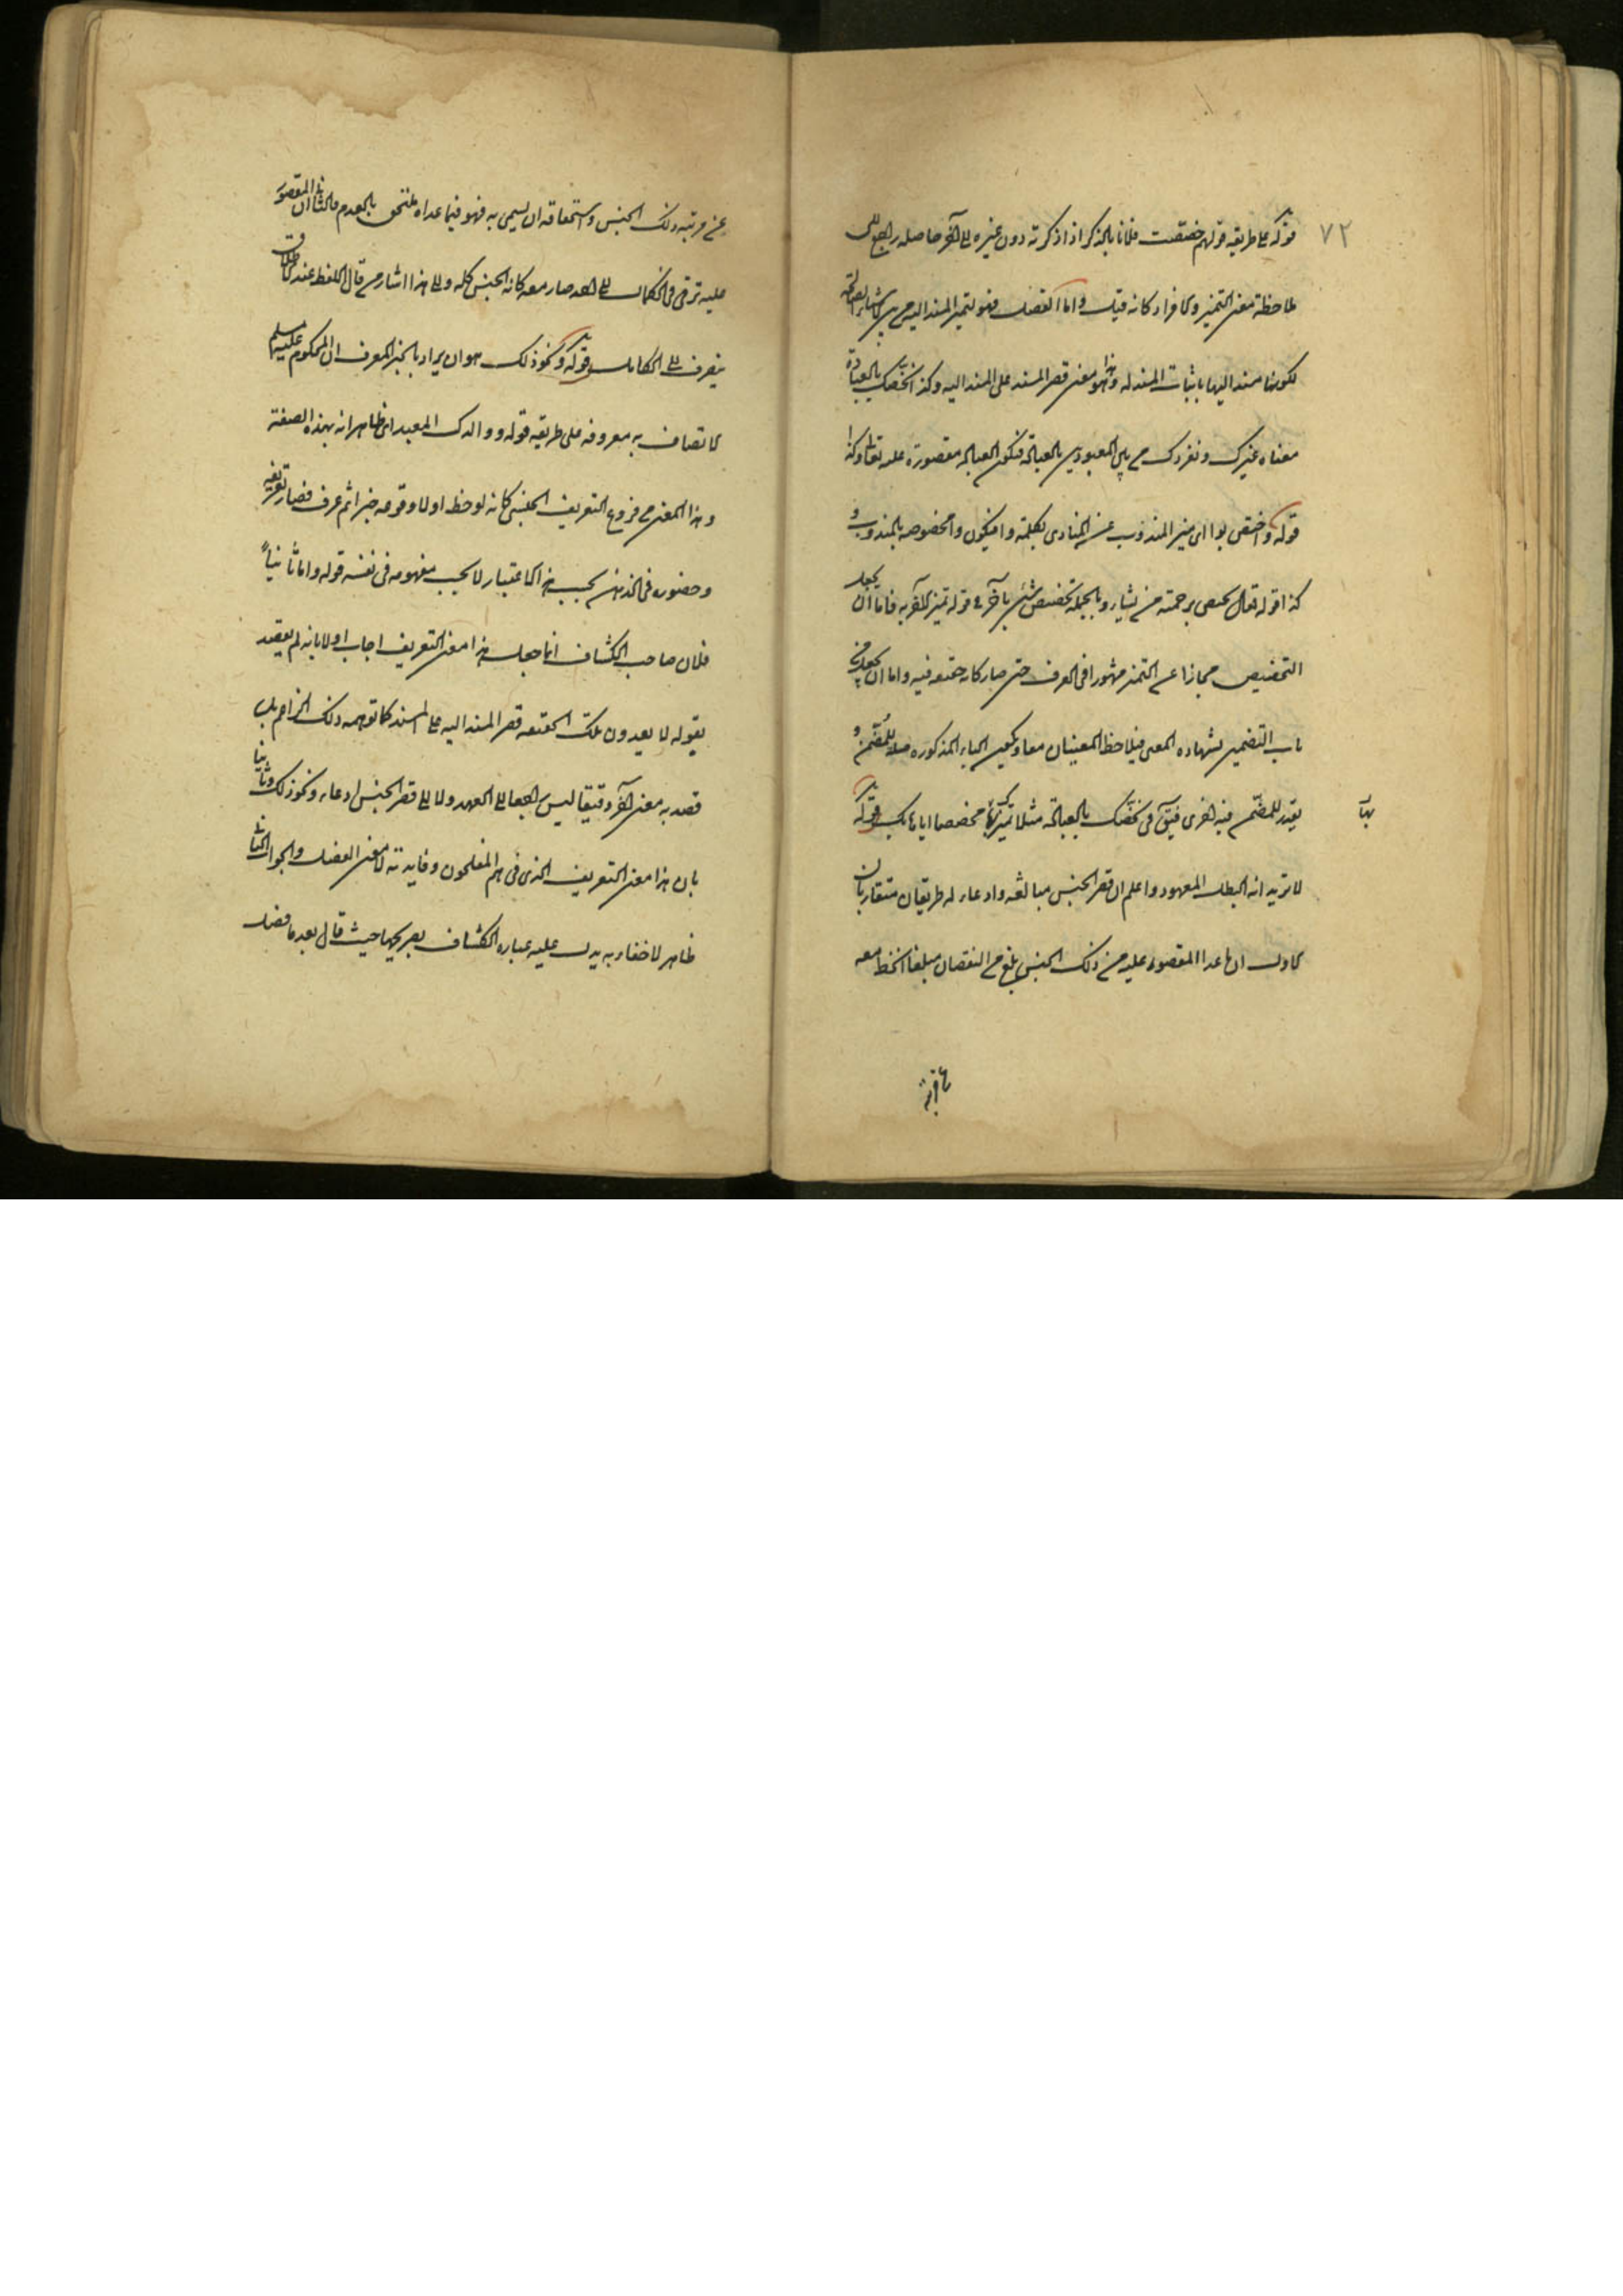 ٧٢
قوله على طريقة قولهم خصصت فلانا بالذكر اذا ذكرته دون غيره الى آخر حاصله راجع الى
ملاحظة معنى التميز والافراد كانه قيل واما الفصل فهو لتميز المسند اليه من بين الاشياء الصالحة
لكونها مسندا اليها باثبات المسند له وهذا هو معنى قصر المسند على المسند اليه وكذا نخصك بالعبادة
معناه نميزك ونفردك من بين المعبودين بالعبادة فتكون العبادة مقصورة عليه تعالى وكذا
قوله واختص بوا اى ميز المندوب عن المنادى بكلمة وا فيكون وا مخصوصه بالمندوب و
كذا قوله تعالى يختص برحمته من يشاء وبالجملة تخصيص شئ بآخر فى قوله تميز الآخر به فاما ان يجعل
التخصيص مجازا عن التميز مشهورا فى العرف حتى صار كانه حقيقة فيه واما ان يجعل من
باب التضمين بشهادة المعنى فيلاحظ المعنيان معا ويكون الباء المذكورة صلة للمضمن و
يقدر للمضمن فيه اخرى فيقال فى نخصك بالعبادة مثلا نميزك بها مخصصا اياها بك قوله
بها
لا تريد انه البطل المعهود واعلم ان قصر الجنس مبالغة وادعاء له طريقان متقاربان
الاول ان ما عدا المقصور عليه من ذلك الجنس بلغ من النقصان مبلغا انحط معه
عن مرتبة ذلك الجنس واستحقاقه ان يسمى به فهو فيما عداه ملتحق بالعدم والثانى ان المقصور
عليه ترقى فى الكمال الى حد صار معه كانه الجنس كله والى هذا اشار من قال اللفظ عند الاطلاق
ينصرف الى الكامل قوله ونحو ذلك هو ان يراد بالخبر المعرف ان المحكوم عليه مسلم
الاتصاف به معروفه على طريقة قوله ووالدك العبد اى ظاهر انه بهذه الصفة
وهذا المعنى من فروع التعريف الجنسى كانه لوحظ اولا وقوعه خبرا ثم عرف فصار تعريفه
وحضوره فى الذهن بحسب هذا الاعتبار لا بحسب مفهومه فى نفسه قوله واما ثانياً
فلان صاحب الكشاف انما جعل هذا معنى التعريف اجاب اولا بانه لم يقصد
بقوله لا يعدون تلك الحقيقة قصر المسند اليه على المسند كما توهمه ذلك الزاعم بل
قصد به معنى آخر دقيقا ليس راجعا الى العهد ولا الى قصر الجنس ادعاء ونحو ذلك وثانيا
بان هذا معنى التعريف الذى فى هم المفلحون وفايدته لا معنى الفصل والجواب الثانى
ظاهر لا خفاء به يدل عليه عبارة الكشاف بصريحها حيث قال بعد ما فصل